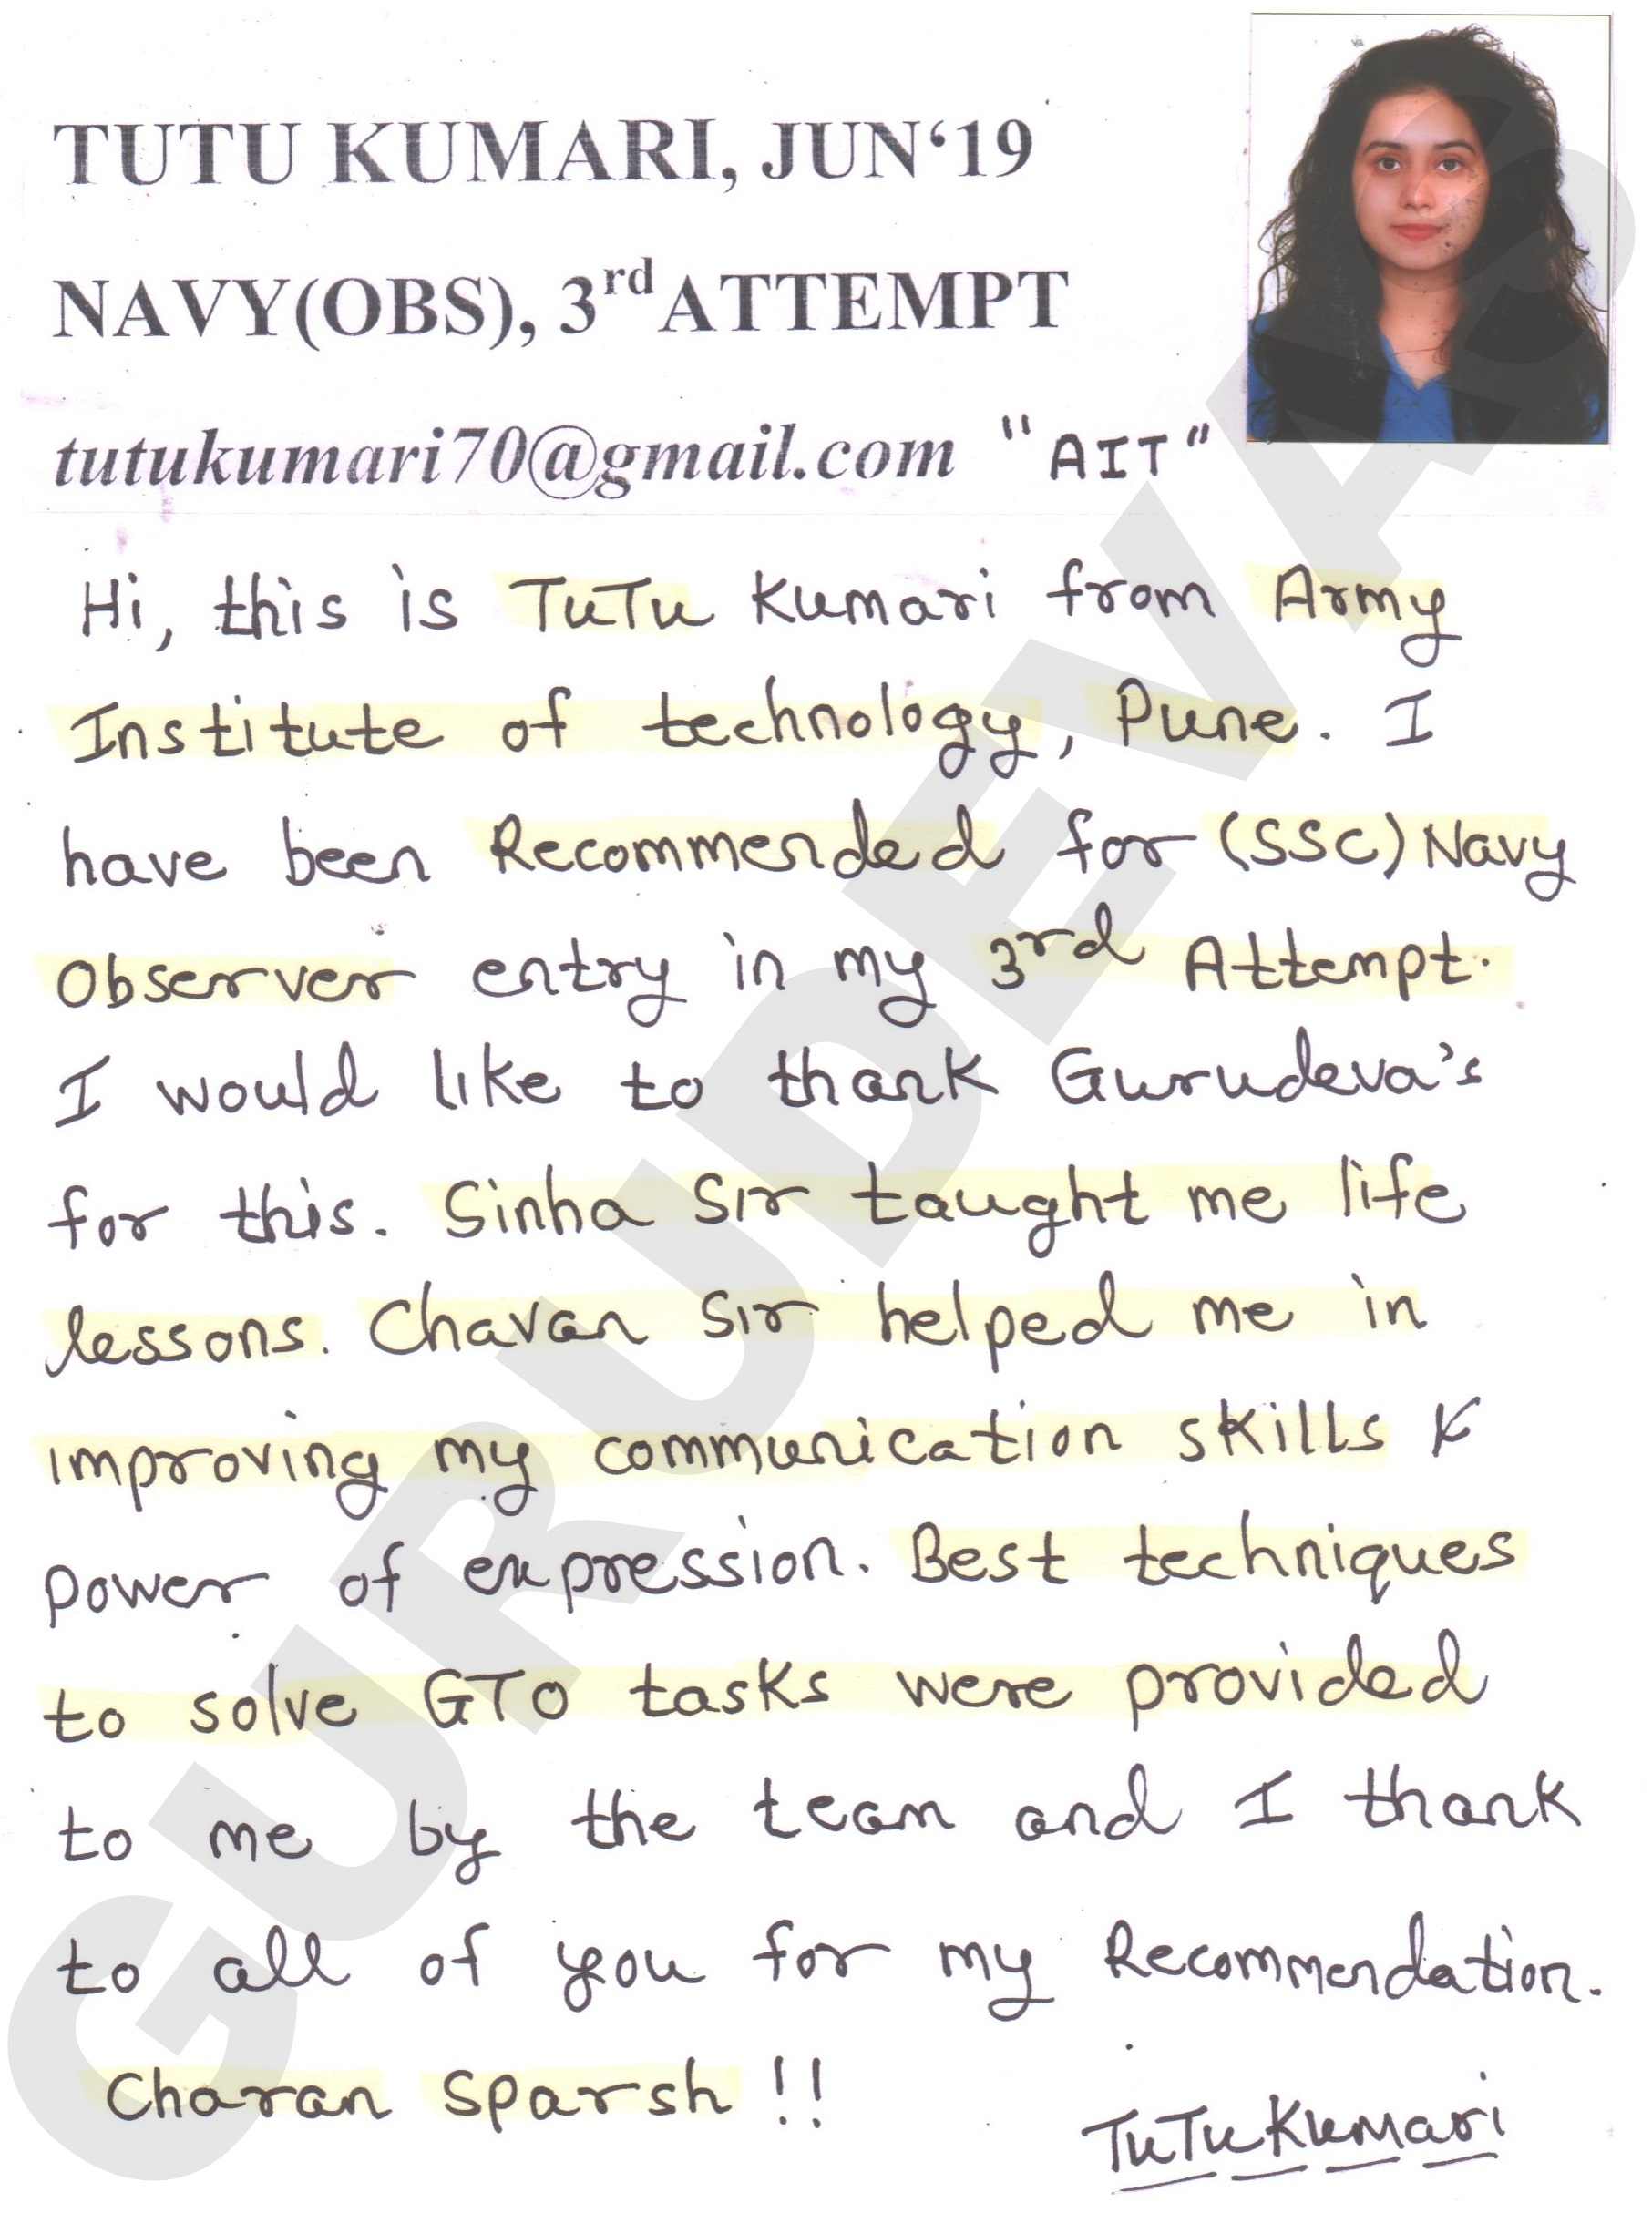 TUTU KUMARI, JUN‘19
NAVY(OBS), 3rd ATTEMPT
tutukumari70@gmail.com "AIT"
Hi, this is TuTu Kumari from Army
Institute of technology, Pune. I
have been Recommended for (SSC) Navy
Observer entry in my 3rd Attempt.
I would like to thank Gurudeva's
for this. Sinha Sir taught me life
lessons. Chavan Sir helped me in
improving my communication skills &
power of expression. Best techniques
to solve GTO tasks were provided
to me by the team and I thank
to all of you for my Recommendation.
Charan Sparsh !!
TuTu Kumari
GURUDEVAS